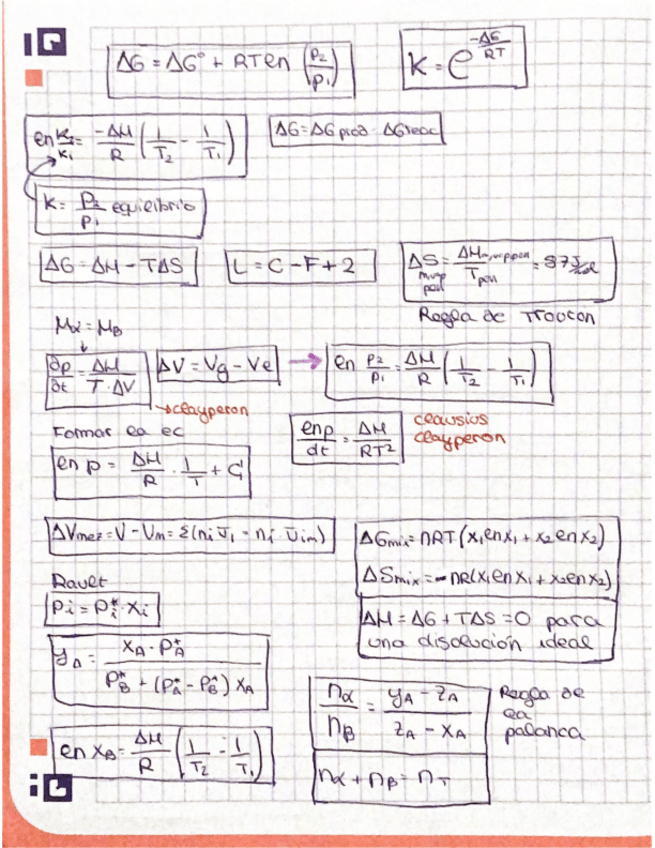 IQ
ΔG = ΔG° + RTln (P2/P1)
K = e^(-ΔG/RT)
ln K2/K1 = -ΔH/R (1/T2 - 1/T1)
ΔG = ΔG prod - ΔG reac
K = P2/P1 equilibrio
ΔG = ΔH - TΔS
L = C - F + 2
ΔS = ΔH / T = 87 J/mol
Regla de Trouton
μα = μβ
∂p/∂t = ΔH/(T·ΔV)
ΔV = Vg - Vl
→
ln P2/P1 = ΔH/R (1/T2 - 1/T1)
→clayperon
Formar la ec
ln p/dt = ΔH/RT²
clausius
clayperon
ln p = ΔH/R · 1/T + C
ΔVmez = V - Vm = Σ(ni v̄i - ni · v̄im)
ΔGmix = nRT(x1 ln x1 + x2 ln x2)
ΔSmix = -nR(x1 ln x1 + x2 ln x2)
Rault
Pi = Pi* · Xi
ΔH = ΔG + TΔS = 0 para
una disolución ideal
yA = XA · PA* / (PB* + (PA* - PB*) XA)
nα/nβ = (yA - zA)/(zA - xA)
Regla de
la
palanca
ln XB = ΔH/R (1/T2 - 1/T1)
nα + nβ = nT
IQ